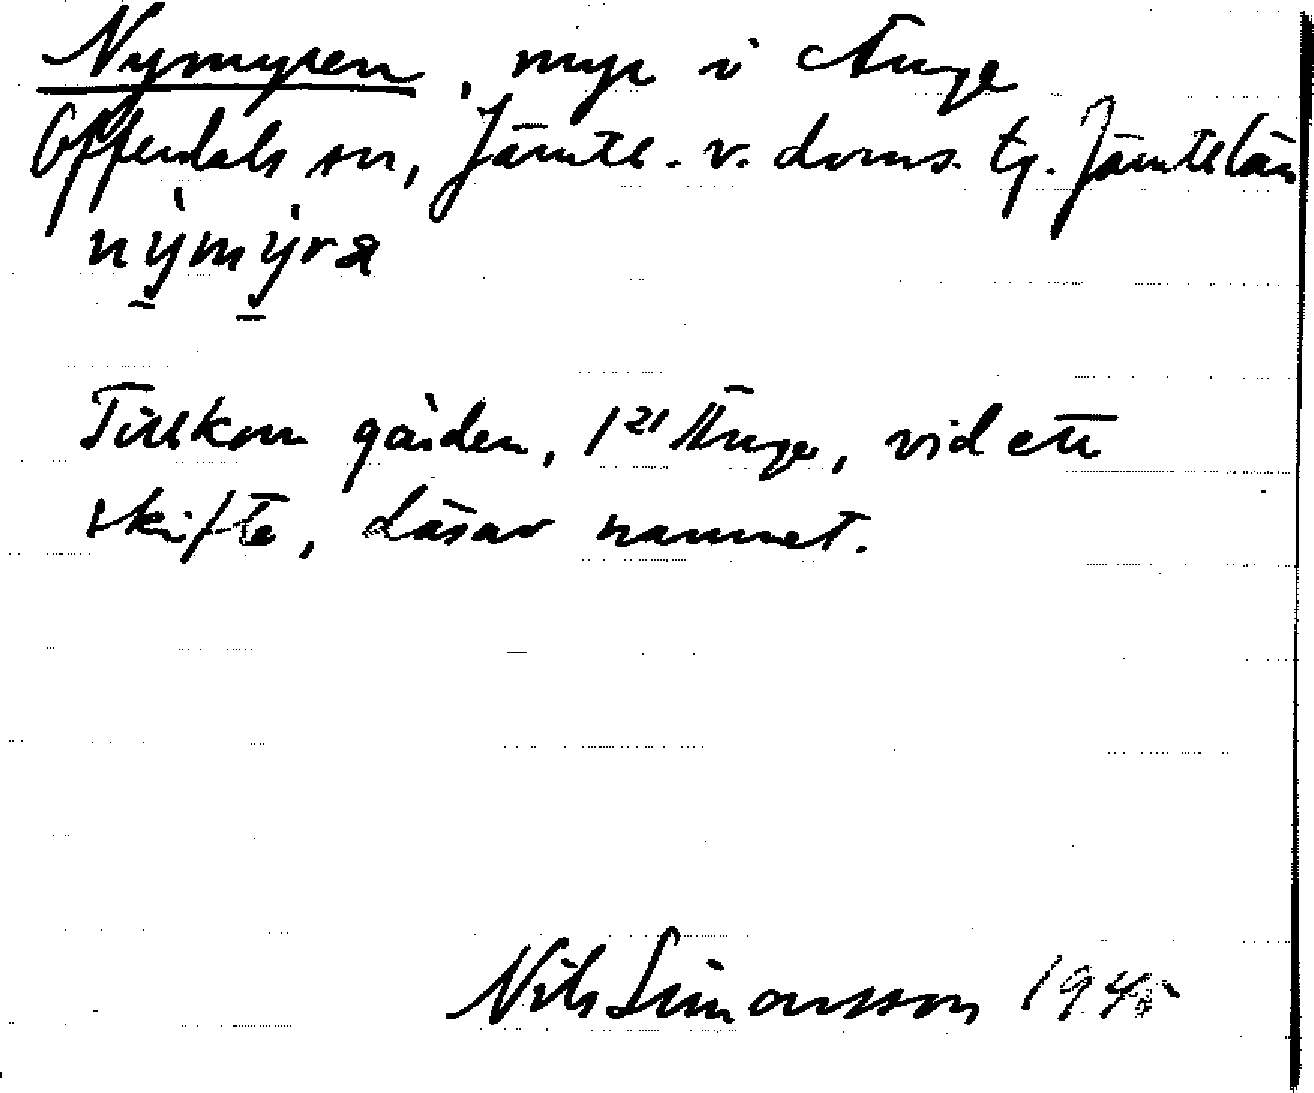 Nymyren, myr i Ånge
Offerdals sn, Jämtl. v. doms. tg. Jämtl län
nỳmỳra
Tillkom gården, 1²¹ Ånge, vid ett
skifte, därav namnet.
Nils Simonsson 1945